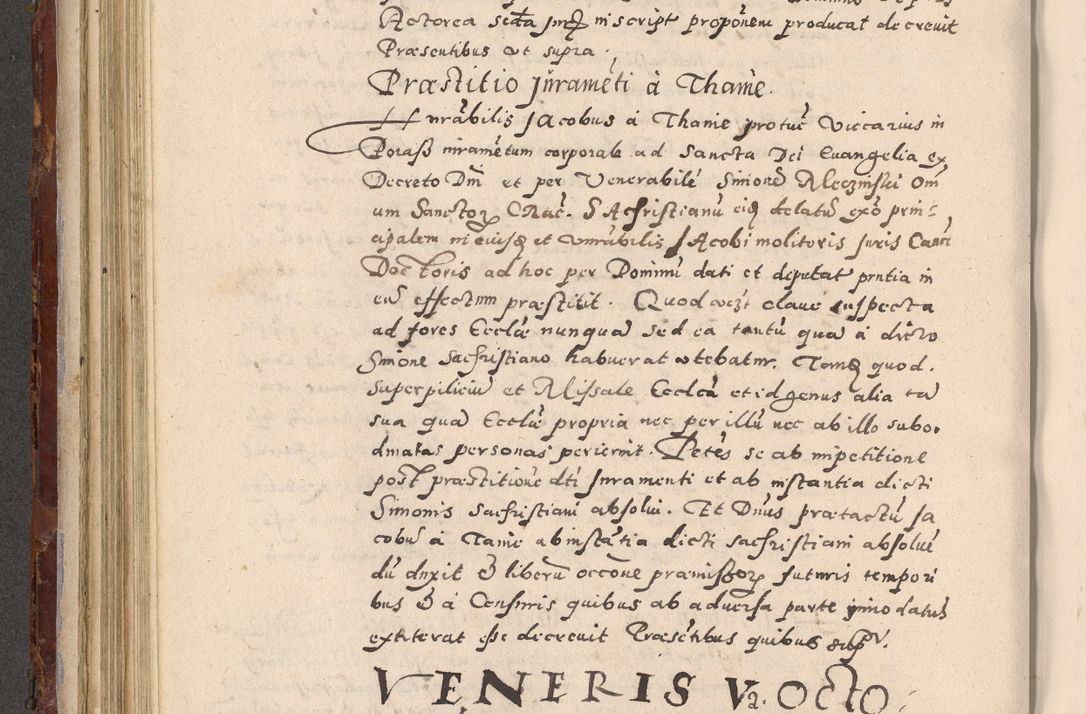 Actorea scđa Jnđ in script proponem producat decrevit
Præsentibus ut supra.
Præstitio Jurameti á Thanie.
Hnrabilis JAcobus á Thanie protuc Viccarius in
Poraß iuramētum corporale ad Sancta Dei Euangelia ex
Decreto Dni et per Venerabilē Simonē Mleczinski Om
um Sanctorꝝ Crac. SAcfristianū eiꝗ delatū exō prin=
cipalem et Vnrabilis JAcobi molitoris Juris Canci
Doctoris ad hoc per Dominū dati et deputat pntia in
eū effectum præstitit. Quod clave inspecta
ad fores Ecclæ nunquā sed ea tantū quā á dicto
Simone Sacfristiano habuerat utebatur. Tamꝗ quod
superpiliciū et Missale Ecclæ et id genus alia tā
sua quā Ecclæ propria nec per illū nec ab illo subo
dinatas personas perierint. Petēs se ab impetitione
post præstitionē dti Juramenti et ab instantia dicti
Simonis Sacfristiani absolui. Et Dnus prætactū Ja
cobū á Tanie ab instātia dicti sacfristiani absoluē
dū duxit & liberū occōne præmissorꝝ futuris tempori
bus & á Censuris quibus ab adversa parte innodatus
extiterat esse decrevit Præsētibus quibus supr.
VENERIS Va. OCTO